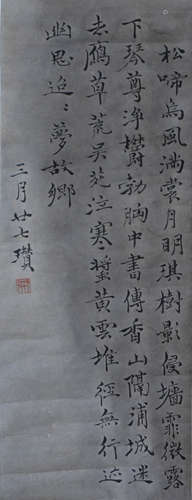 松啼烏風満裳月明琪樹影侵墻霏微露
下琴尊淨欝勃胸中書傳香山隔浦城迷
去鴈草荒吴苑泣寒螿黄雲堆徑無行迹
幽思迢〻夢故鄉
三月廿七瓚